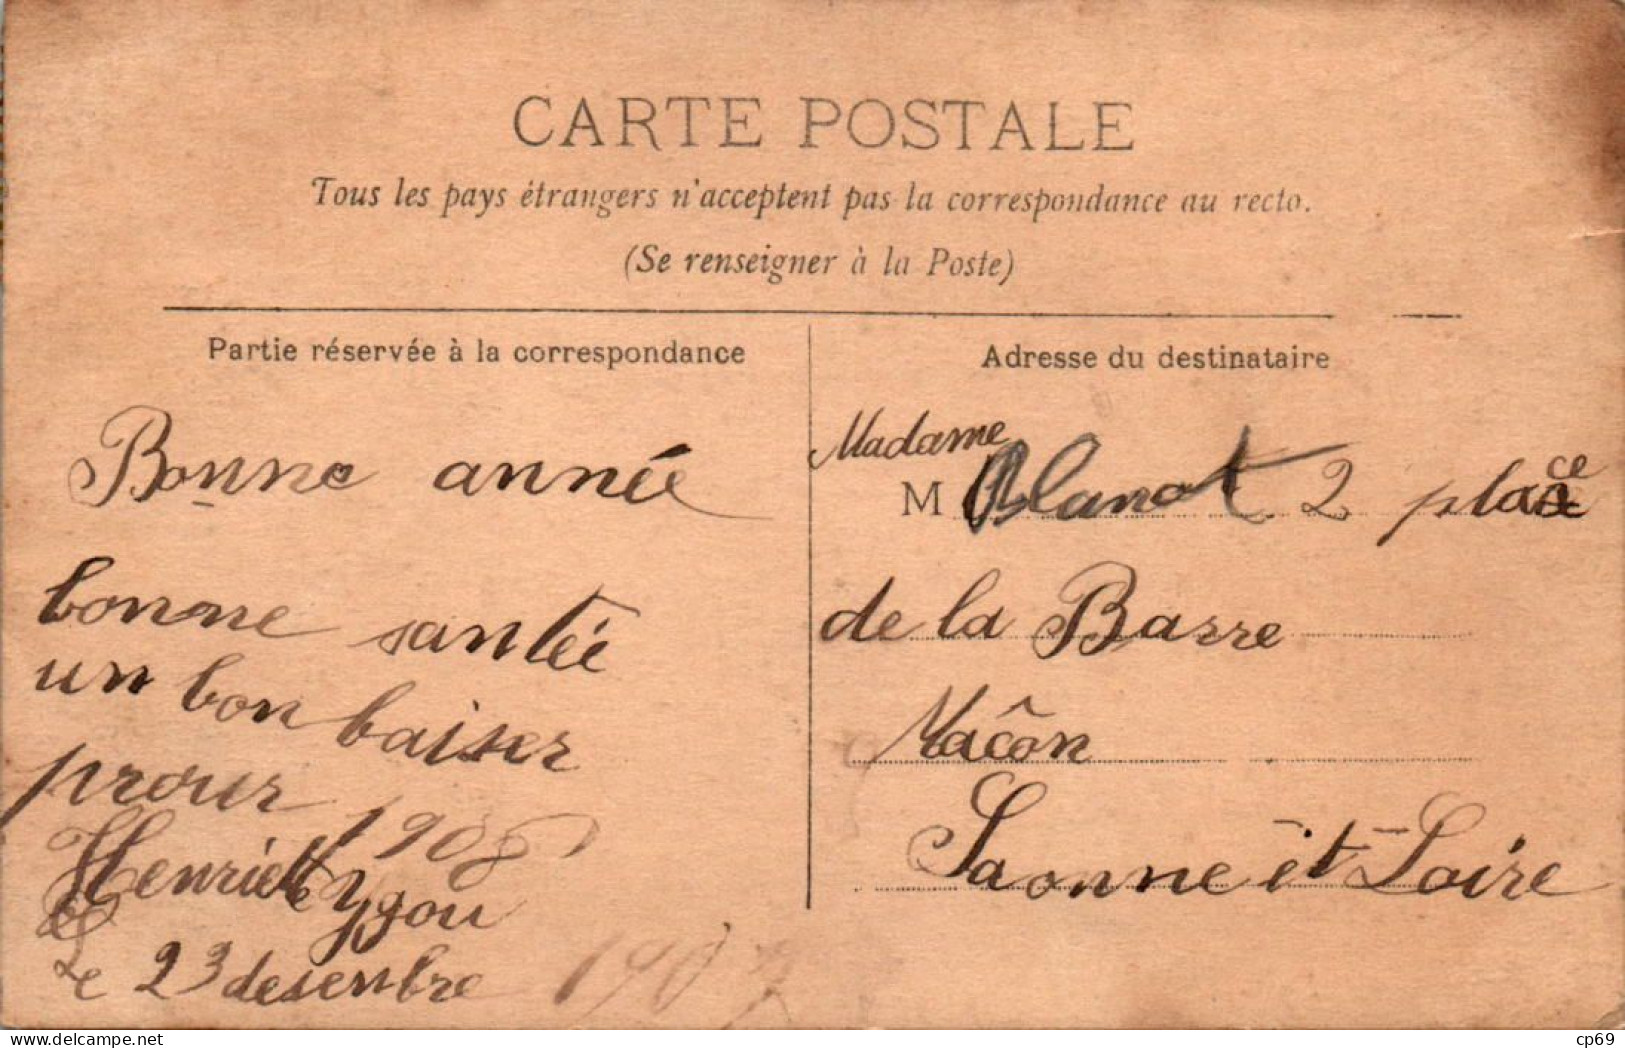 CARTE POSTALE
Tous les pays étrangers n'acceptent pas la correspondance au recto.
(Se renseigner à la Poste)
Partie réservée à la correspondance
Bonne année
bonne santée
un bon baiser
pour 1908
Henriette Ygou
Le 23 desenbre 1907
Adresse du destinataire
Madame
M Blanot 2 place
de la Barre
Mâcon
Saonne-et-Loire
delcampe.net
cp69